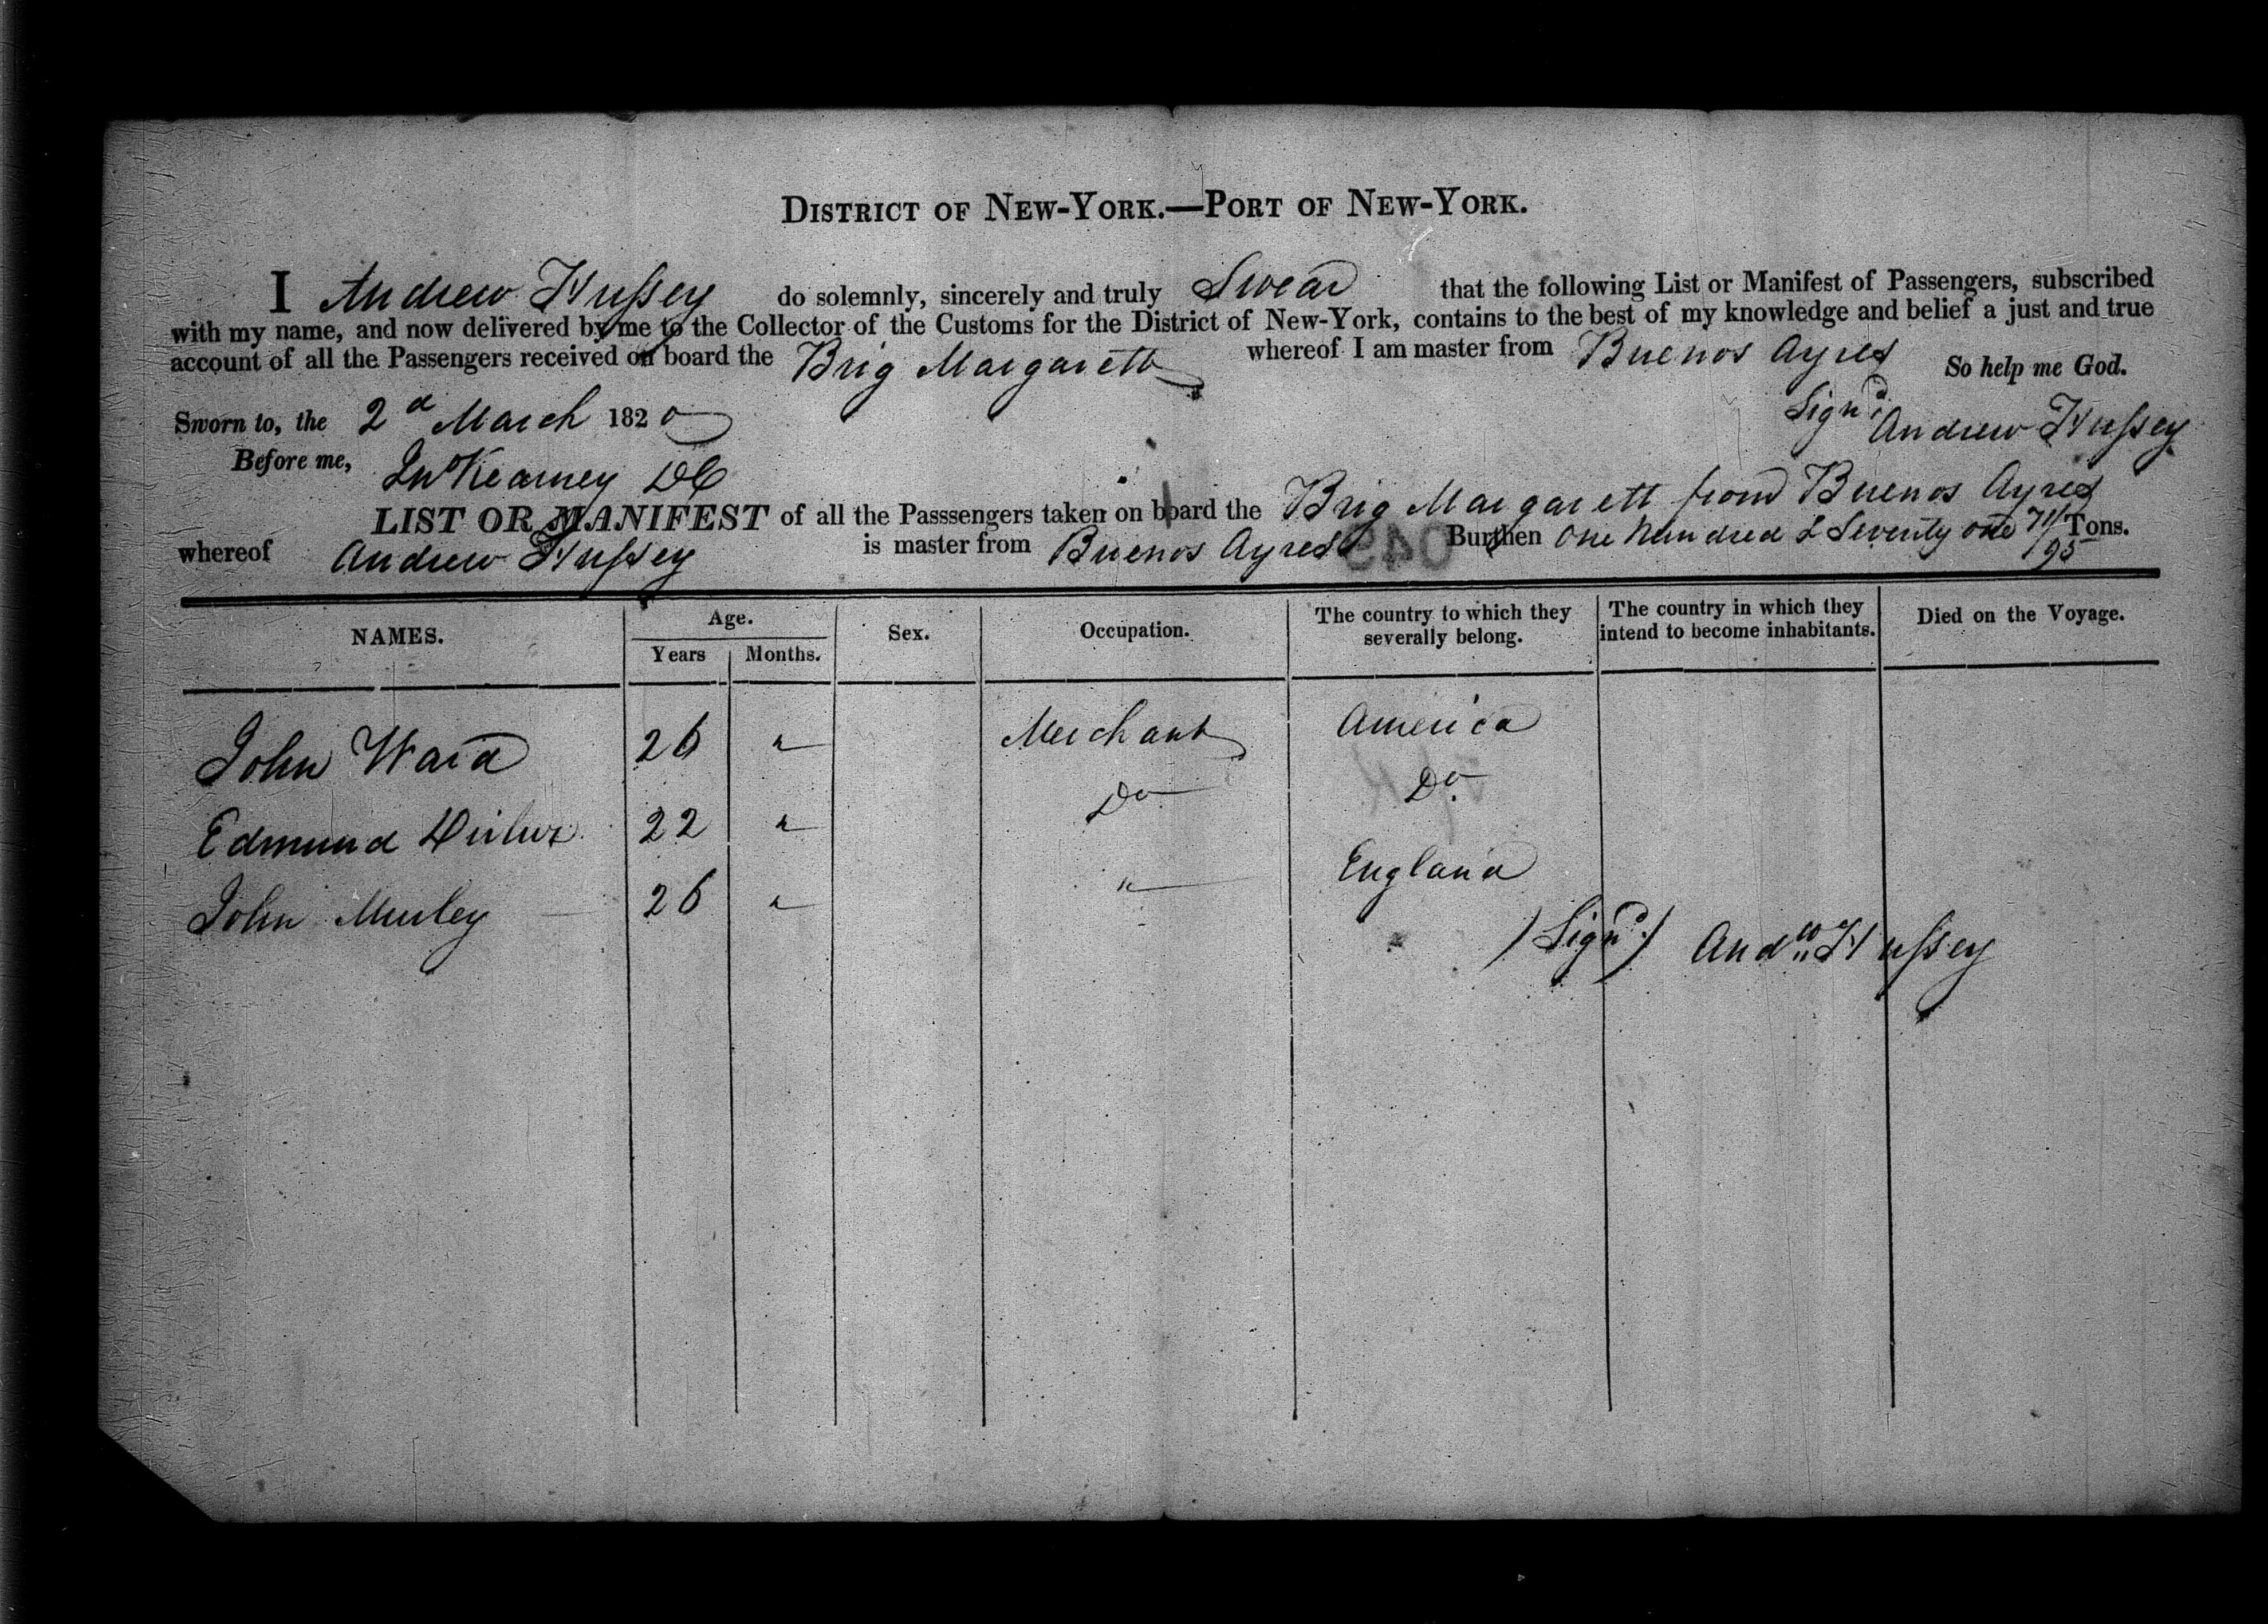 DISTRICT OF NEW-YORK.—PORT OF NEW-YORK.
I Andrew Hussey do solemnly, sincerely and truly Swear that the following List or Manifest of Passengers, subscribed
with my name, and now delivered by me to the Collector of the Customs for the District of New-York, contains to the best of my knowledge and belief a just and true
account of all the Passengers received on board the Brig Margarett whereof I am master from Buenos Ayres So help me God.
Sworn to, the 2d March 1820 Signd. Andrew Hussey
Before me, Kearney DC
LIST OR MANIFEST of all the Passsengers taken on board the Brig Margarett from Buenos Ayres
whereof Andrew Hussey is master from Buenos Ayres Burthen One hundred & Seventy one 71/95 Tons.
NAMES. Age. Years Months. Sex. Occupation. The country to which they severally belong. The country in which they intend to become inhabitants. Died on the Voyage.
John Ward 26 " Merchant America
Edmund 22 " Do Do.
John Murley 26 " " England
(Signd.) Andw. Hussey